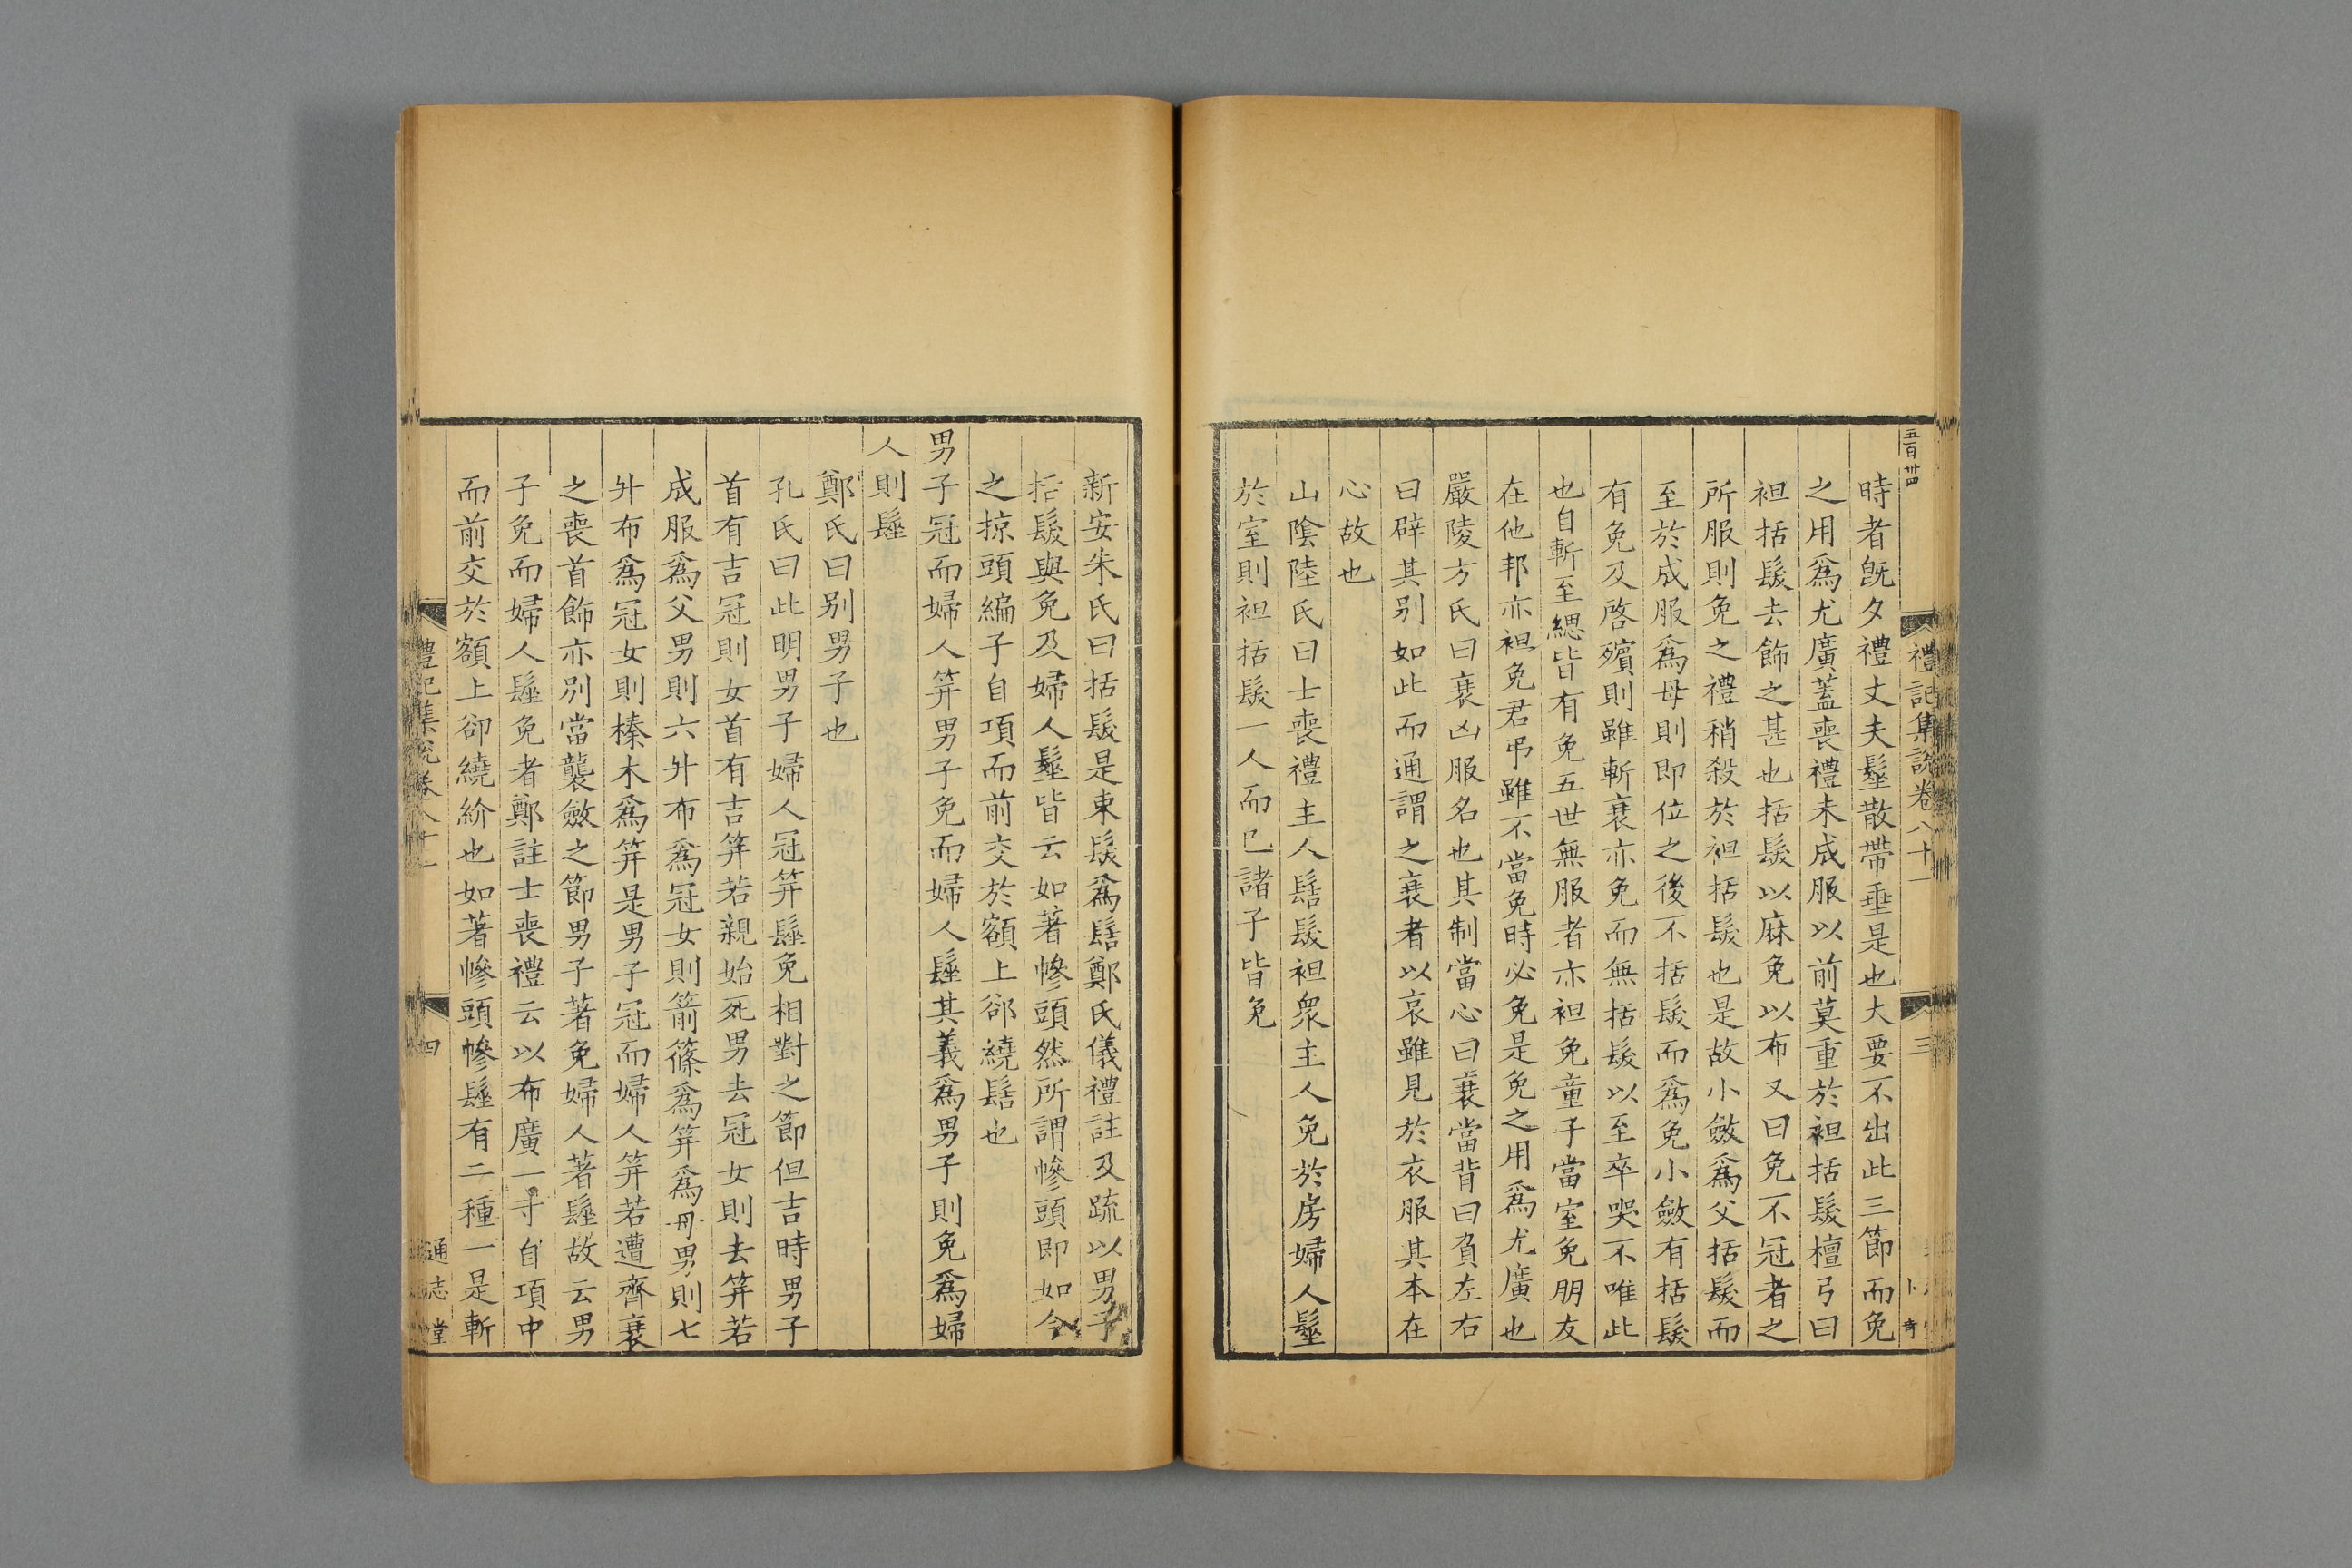 五百卌四
禮記集說卷八十一
三
時者旣夕禮丈夫髽散帶垂是也大要不出此三節而免
之用爲尤廣蓋喪禮未成服以前莫重於袒括髮檀弓曰
袒括髮去飾之甚也括髮以麻免以布又曰免不冠者之
所服則免之禮稍殺於袒括髮也是故小斂爲父括髮而
至於成服爲母則即位之後不括髮而爲免小斂有括髮
有免及啓殯則雖斬衰亦免而無括髮以至卒哭不唯此
也自斬至緦皆有免五世無服者亦袒免童子當室免朋友
在他邦亦袒免君弔雖不當免時必免是免之用爲尤廣也
嚴陵方氏曰衰凶服名也其制當心曰衰當背曰負左右
曰辟其别如此而通謂之衰者以哀雖見於衣服其本在
心故也
山陰陸氏曰士喪禮主人髻髮袒衆主人免於房婦人髽
於室則袒括髮一人而已諸子皆免
新安朱氏曰括髮是束髮爲髻鄭氏儀禮註及疏以男子
括髮與免及婦人髽皆云如著幓頭然所謂幓頭即如今
之掠頭編子自項而前交於額上郤繞髻也
男子冠而婦人笄男子免而婦人髽其義爲男子則免爲婦
人則髽
鄭氏曰别男子也
孔氏曰此明男子婦人冠笄髽免相對之節但吉時男子
首有吉冠則女首有吉笄若親始死男去冠女則去笄若
成服爲父男則六升布爲冠女則箭篠爲笄爲母男則七
升布爲冠女則榛木爲笄是男子冠而婦人笄若遭齊衰
之喪首飾亦別當襲斂之節男子著免婦人著髽故云男
子免而婦人髽免者鄭註士喪禮云以布廣一寸自項中
而前交於額上卻繞紒也如著幓頭幓髽有二種一是斬
禮記集說卷八十一
四
通志堂